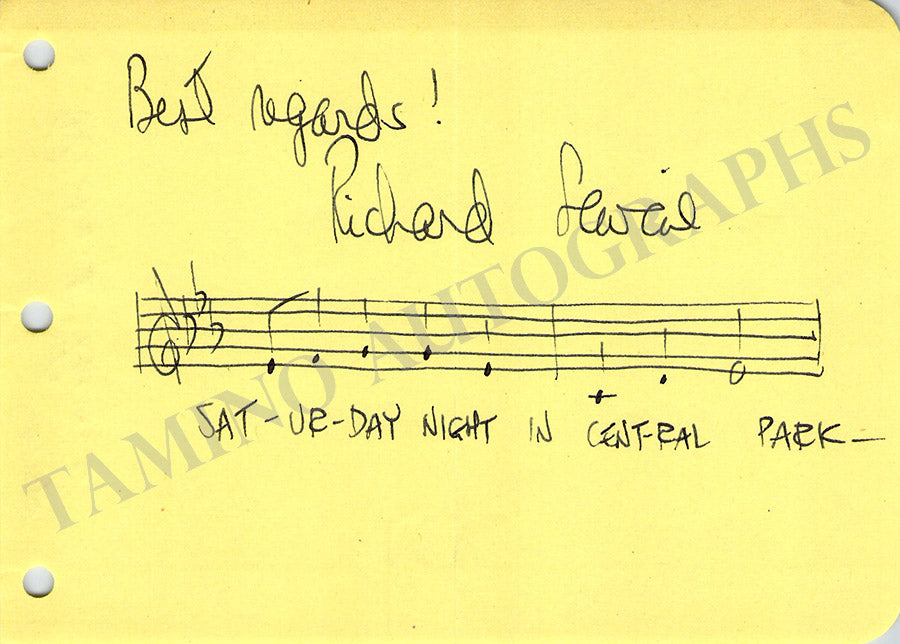 Best regards!
Richard Lewine
SAT-UR-DAY NIGHT IN CENT-RAL PARK—
TAMINO AUTOGRAPHS